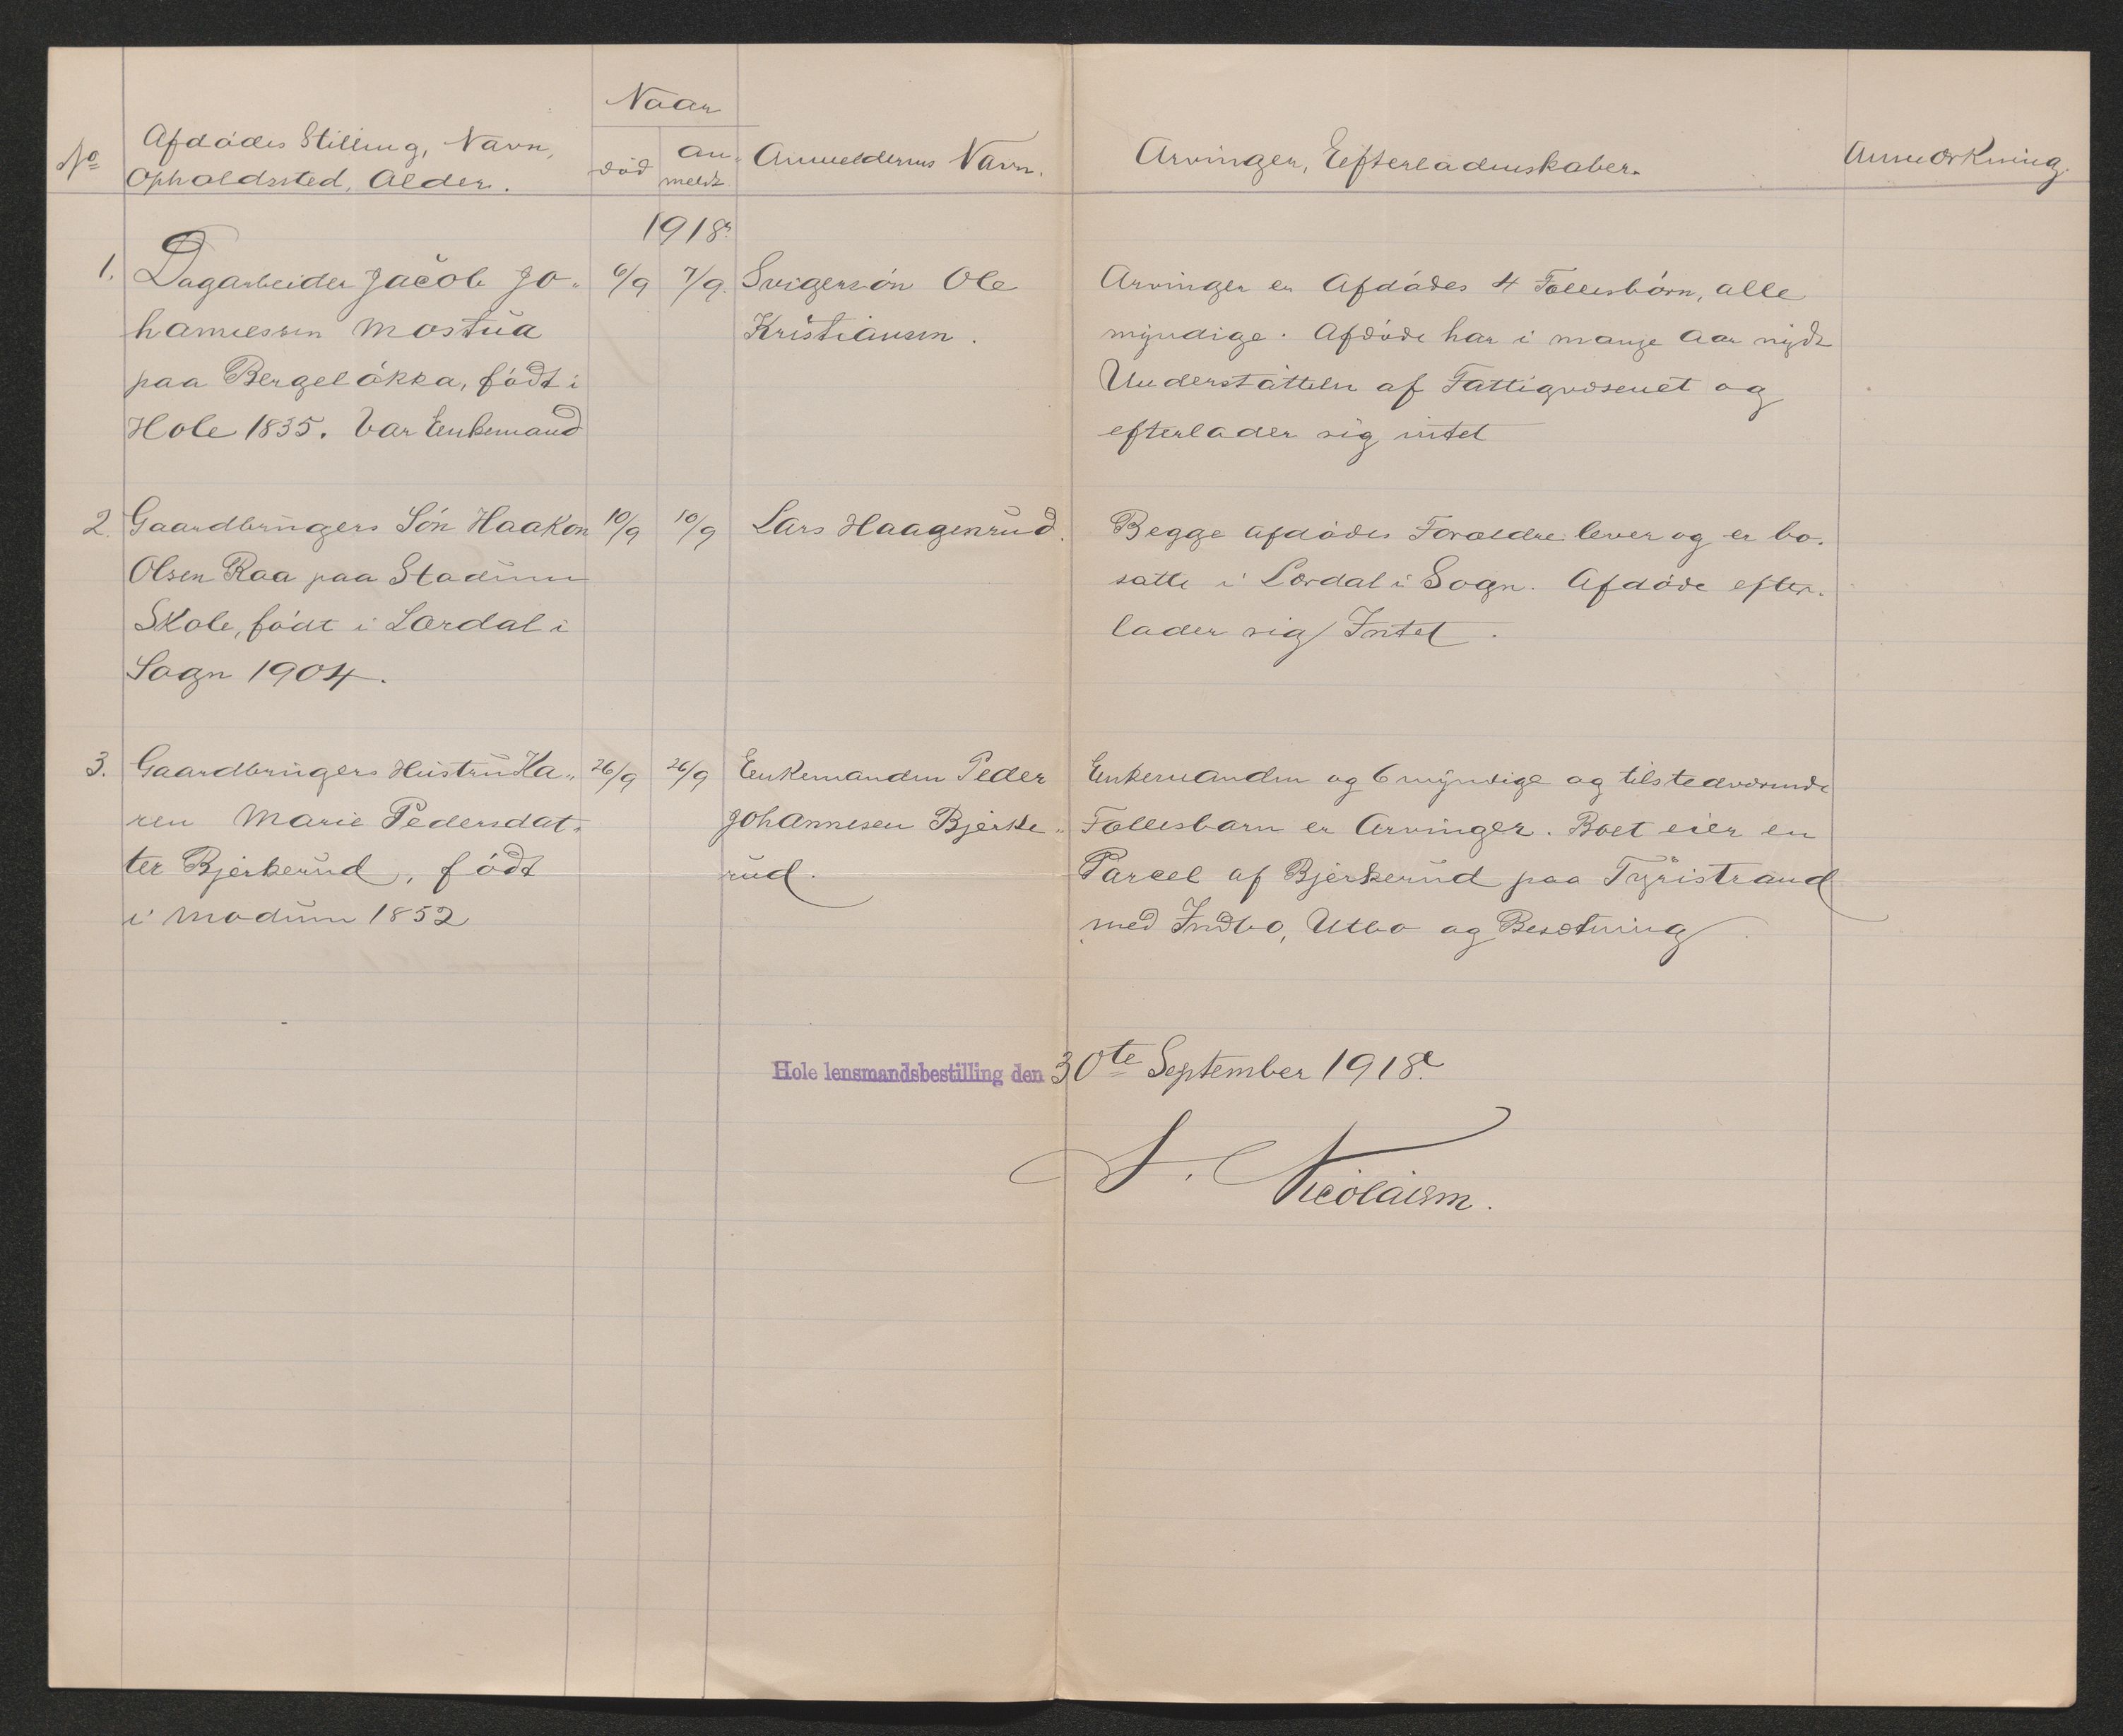 Naar
No Afdødes Stilling, Navn, Opholdssted, Alder. død anmeldt Anmelderens Navn. Arvinger, Efterladenskaber. Anmærkning.
1918.
1. Dagarbeider Jacob Jo- 6/9 7/9 Svigersøn Ole Arvinger er Afdødes 4 Fællesbørn, alle
hannessen Mostua Kristiansen. myndige. Afdøde har i mange Aar nydt
paa Bergeløkka, født i Understøttelse af Fattigvæsenet og
Hole 1835. Var Enkemand efterlader sig intet
2. Gaardbrugers Søn Haakon 10/9 10/9 Lars Haagenrud. Begge afdødes Forældre lever og er bo-
Olsen Raa paa Stadum satte i Lærdal i Sogn. Afdøde efter-
Skole, født i Lærdal i lader sig Intet.
Sogn 1904.
3. Gaardbrugers Hustru Ka- 26/9 26/9 Enkemanden Peder Enkemanden og 6 myndige og tilstedværende
ren Marie Pedersdat- Johannesen Bjerke- Fællesbarn er Arvinger. Boet eier en
ter Bjerkerud, født rud. Parcel af Bjerkerud paa Tyristrand
i Modum 1852 med Indbo, Utbo og Besætning
Hole lensmandsbestilling den 30te September 1918.
Nicolaisen.